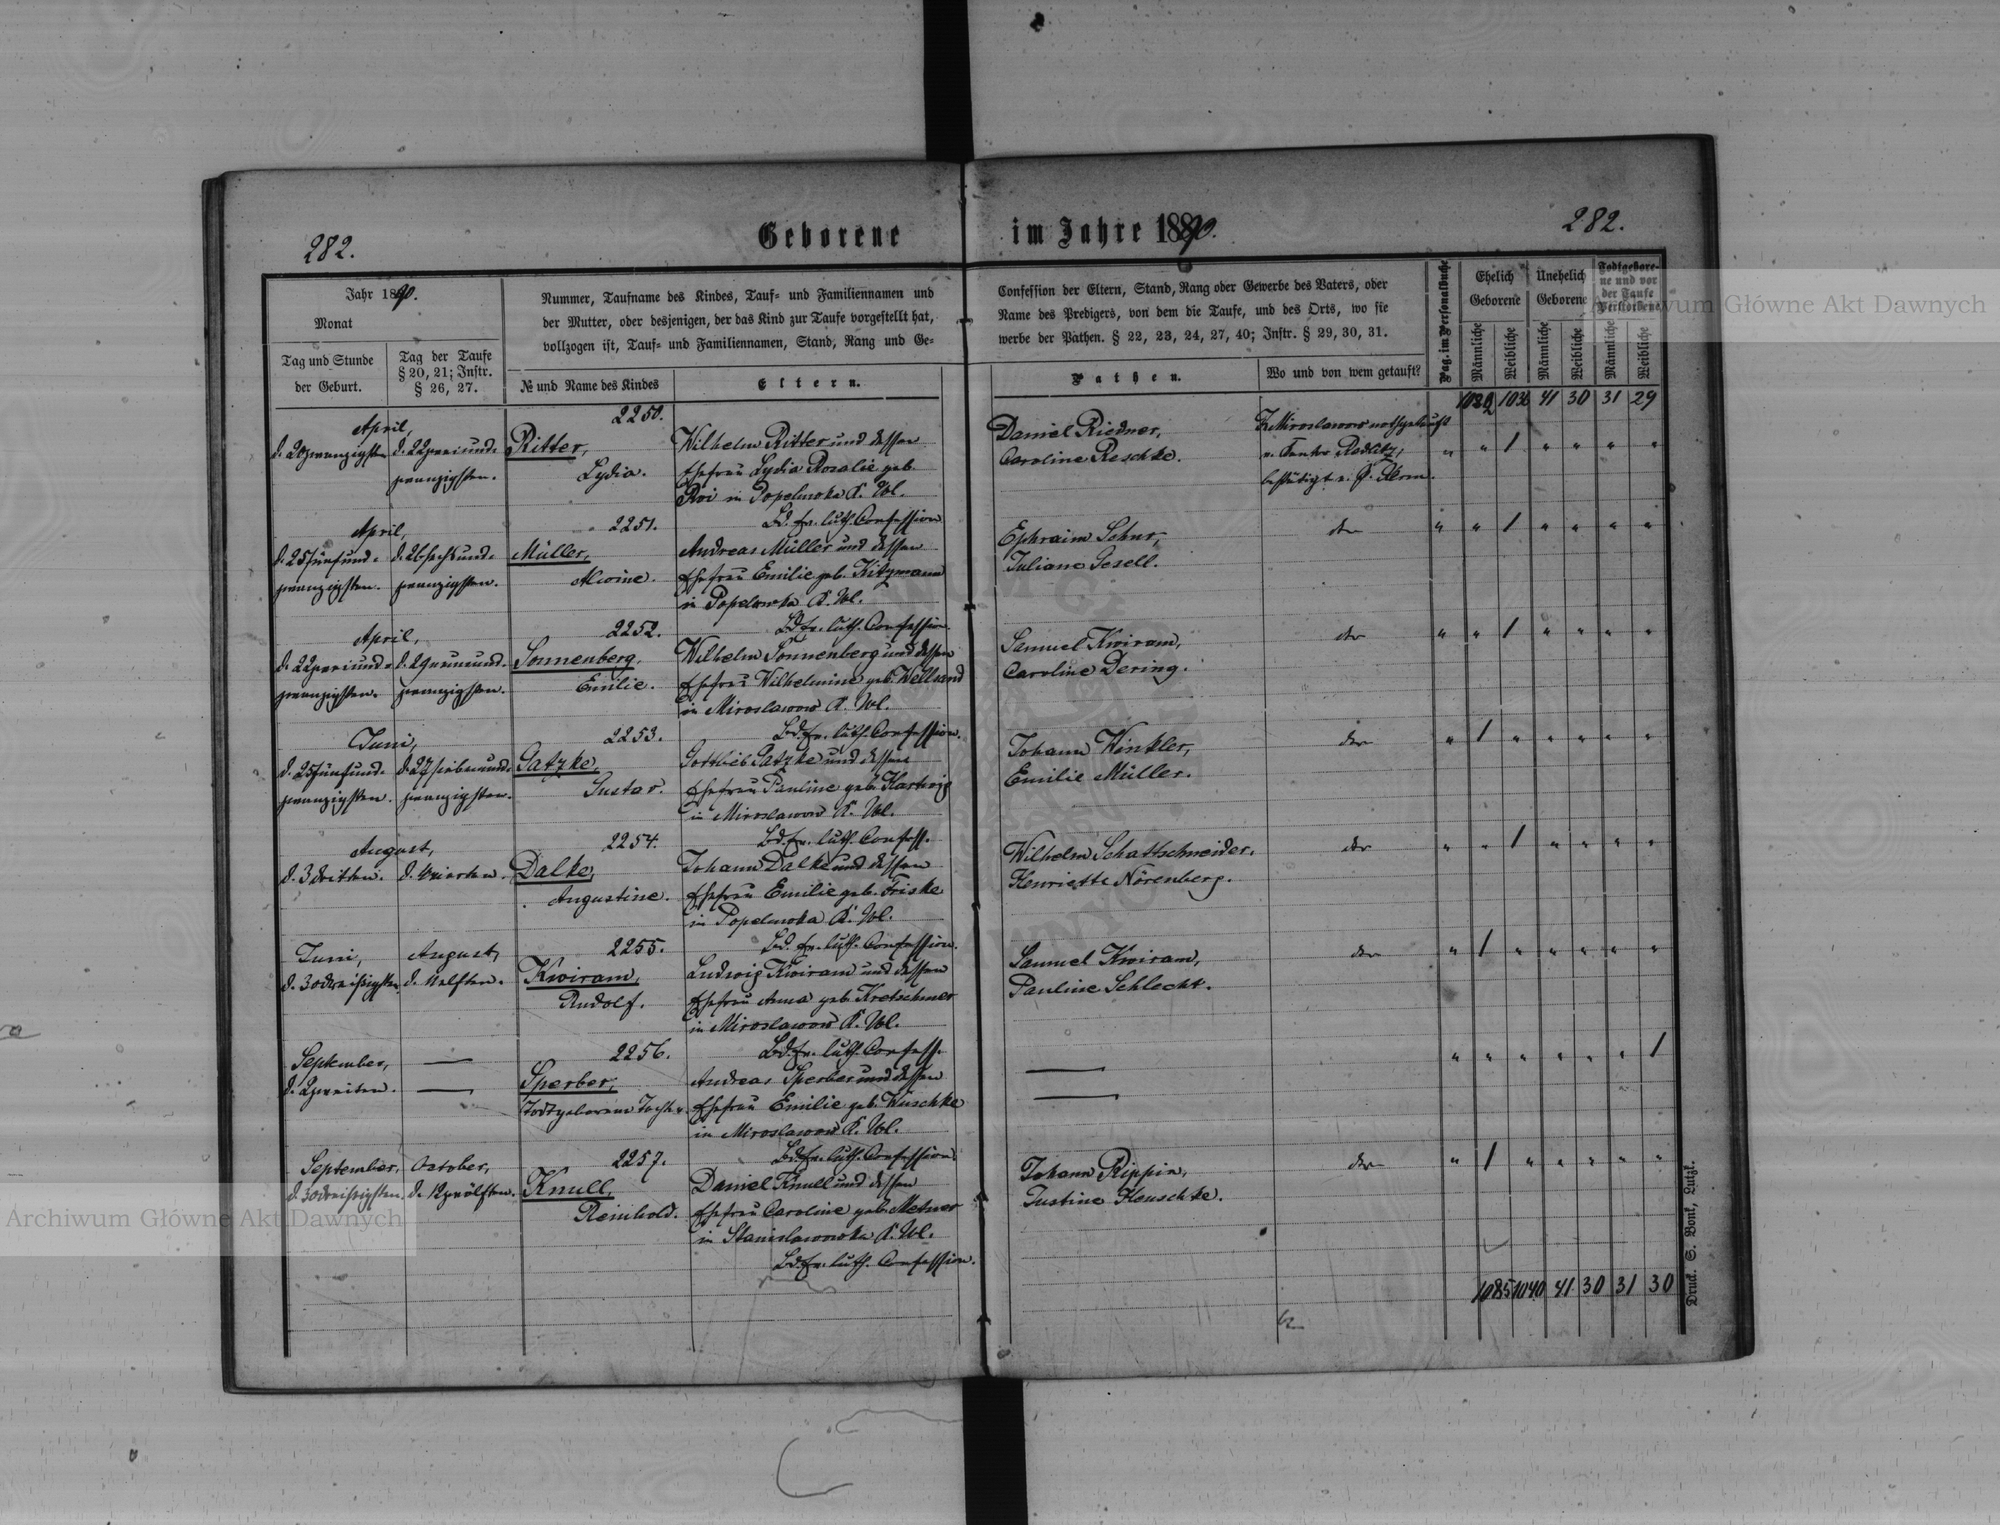 282.
Geborene im Jahre 1890.
282.
Jahr 1890.
Monat
Tag und Stunde
der Geburt.
Tag der Taufe
§ 20, 21; Instr.
§ 26, 27.
Nummer, Taufname des Kindes, Tauf- und Familiennamen und
der Mutter, oder desjenigen, der das Kind zur Taufe vorgestellt hat,
vollzogen ist, Tauf- und Familiennamen, Stand, Rang und Ge-
№ und Name des Kindes
Eltern.
Confession der Eltern, Stand, Rang oder Gewerbe des Vaters, oder
Name des Predigers, von dem die Taufe, und des Orts, wo sie
werbe der Pathen. § 22, 23, 24, 27, 40; Instr. § 29, 30, 31.
Pathen.
Wo und von wem getauft?
Pag. im Personalbuche
Ehelich
Geborene
Unehelich
Geborene
Todtgebore-
ne und vor
der Taufe
Verstorbene
Männliche
Weibliche
Männliche
Weibliche
Männliche
Weibliche
41 30 31 29
April,
d. 20 zwanzigsten
d. 22 zweiund-
zwanzigsten.
2250.
Ritter,
Lydia.
Wilhelm Ritter und dessen
Ehefrau Lydia Rosalie geb.
Roi in Popelowka K. Wl.
Bd. ev. luth. Confession
Daniel Riedner,
Caroline Reschke.
Z. Miroslawow nothgetauft
v. Cantor Radatz,
bestätigt v. P. Kern.
" " 1 " " " "
April,
d. 25 fünfund-
zwanzigsten.
d. 26 sechsund-
zwanzigsten.
2251.
Müller,
Alwine.
Andreas Müller und dessen
Ehefrau Emilie geb. Kitzmann
in Popelowka K. Wl.
Bd. ev. luth. Confession.
Ephraim Schur,
Juliane Gesell.
dto
" " 1 " " " "
April,
d. 22 zweiund-
zwanzigsten.
d. 29 neunund-
zwanzigsten.
2252.
Sonnenberg,
Emilie.
Wilhelm Sonnenberg und dessen
Ehefrau Wilhelmine geb. Welland
in Miroslawow K. Wl.
Bd. ev. luth. Confession.
Samuel Kwiram,
Caroline Dering.
dto
" " 1 " " " "
Juni,
d. 25 fünfund-
zwanzigsten.
d. 27 siebenund-
zwanzigsten.
2253.
Gatzke,
Gustav.
Gottlieb Gatzke und dessen
Ehefrau Pauline geb. Hartwig
in Miroslawow K. Wl.
Bd. ev. luth. Confess.
Johann Winkler,
Emilie Müller.
dto
" 1 " " " " "
August,
d. 3 dritten.
d. 4 vierten.
2254.
Dalke,
Augustine.
Johann Dalke und dessen
Ehefrau Emilie geb. Friske
in Popelowka K. Wl.
Bd. ev. luth. Confession.
Wilhelm Schattschneider.
Henriette Nörenberg.
dto
" " 1 " " " "
Juni,
d. 30 dreißigsten.
August,
d. 11 elften.
2255.
Kwiram,
Rudolf.
Ludwig Kwiram und dessen
Ehefrau Anna geb. Kretschmer
in Miroslawow K. Wl.
Bd. ev. luth. Confess.
Samuel Kwiram,
Pauline Schlecht.
dto
" 1 " " " " "
September,
d. 2 zweiten.
2256.
Sperber,
Todtgeborene Tocht.
Andreas Sperber und dessen
Ehefrau Emilie geb. Wuschke
in Miroslawow K. Wl.
Bd. ev. luth. Confession.
" " " " " " 1
September,
d. 30 dreißigsten.
October,
d. 12 zwölften.
2257.
Knull,
Reinhold.
Daniel Knull und dessen
Ehefrau Caroline geb. Metner
in Stanislawowka K. Wl.
Bd. ev. luth. Confession.
Johann Rippin,
Justine Heuschke.
dto
" 1 " " " " "
1085 1040 41 30 31 30
Druck. S. Bonk, Lutzk.
Archiwum Główne Akt Dawnych
Archiwum Główne Akt Dawnych